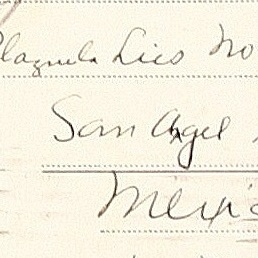 Plazuela Lics No
San Angel
Mexic